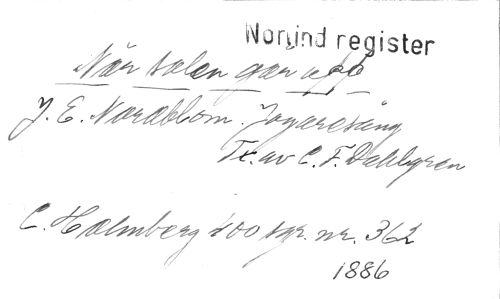 Norlind register
När solen går upp
J. E. Nordblom. Jägaresång
Tx. av C. F. Dahlgren
C. Holmberg 400 sgr. nr. 362
1886